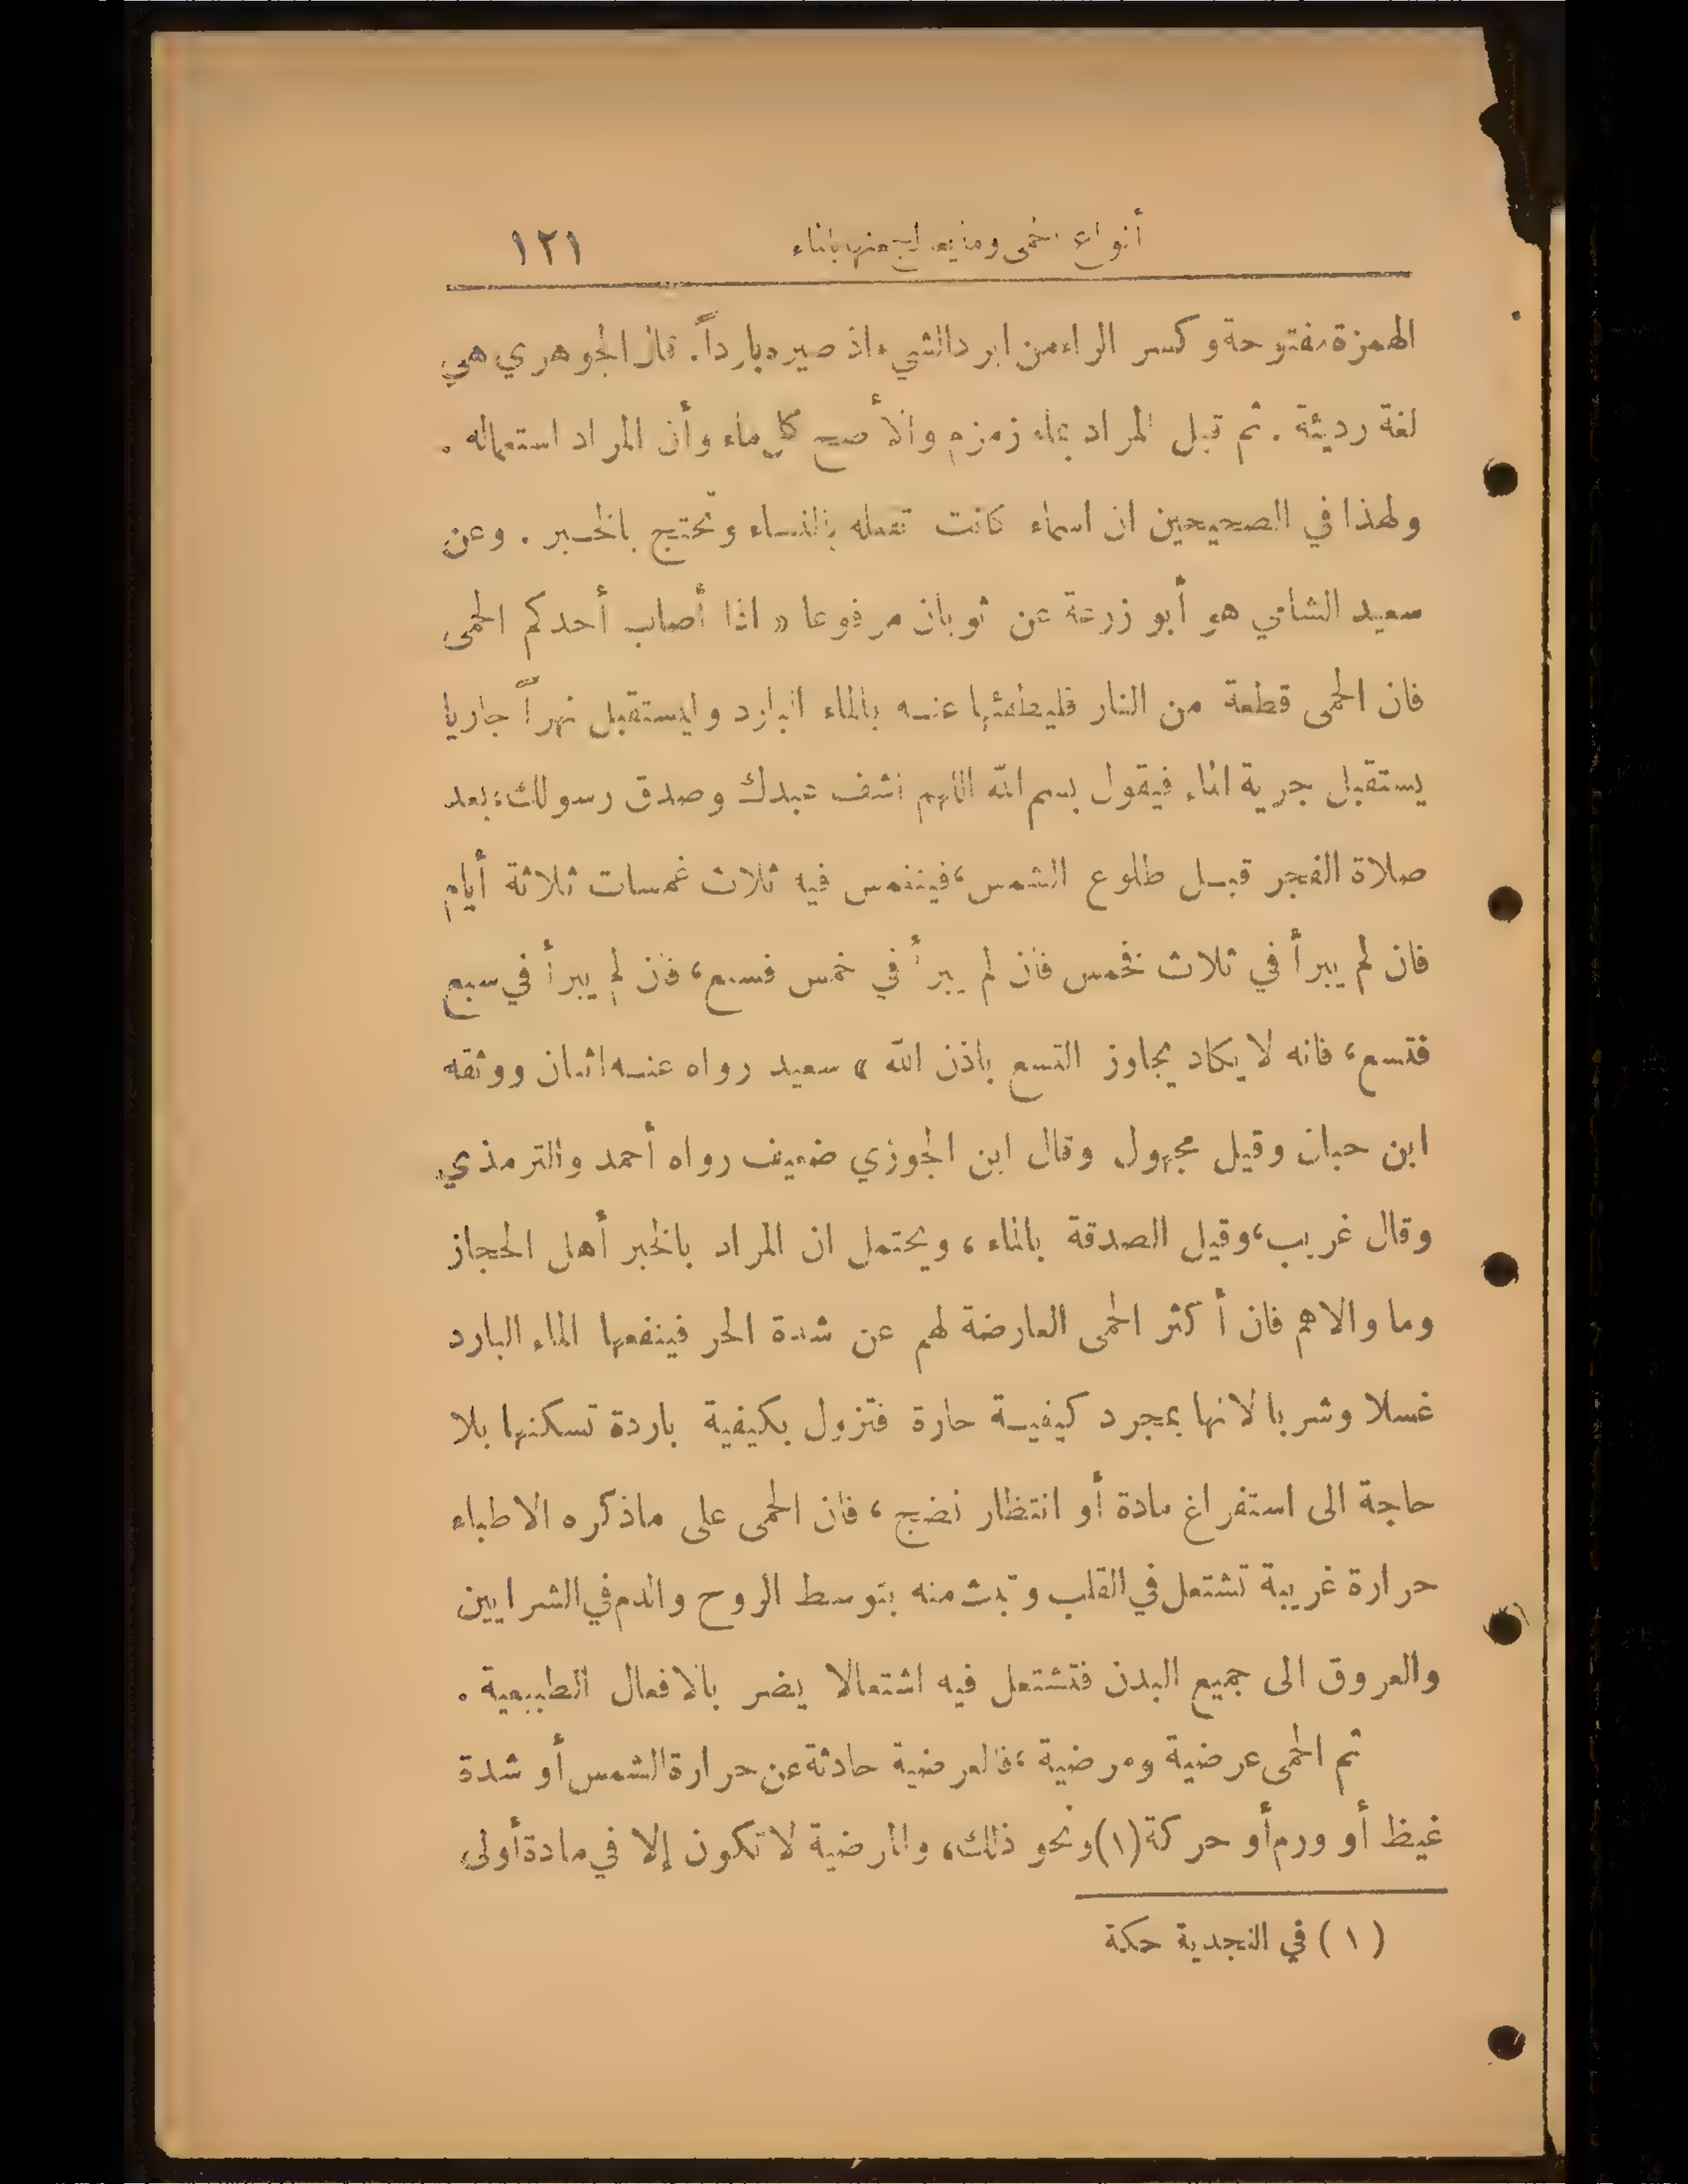 أنواع الحمى وما يعالج منها بالماء ١٢١
الهمزة مفتوحة وكسر الراء من ابرد الشيء اذ صيره بارداً. قال الجوهري هي
لغة رديئة . ثم قيل المراد بماء زمزم والأصح كل ماء وأن المراد استعماله .
ولهذا في الصحيحين ان اسماء كانت تفعله بالنساء وتحتج بالخبر . وعن
سعيد الشامي هو أبو زرعة عن ثوبان مرفوعا « اذا أصاب أحدكم الحمى
فان الحمى قطعة من النار فليطفئها عنه بالماء البارد وليستقبل نهراً جاريا
يستقبل جرية الماء فيقول بسم الله اللهم اشف عبدك وصدق رسولك، بعد
صلاة الفجر قبل طلوع الشمس، فينغمس فيه ثلاث غمسات ثلاثة أيام
فان لم يبرأ في ثلاث فخمس فان لم يبرأ في خمس فسبع، فان لم يبرأ في سبع
فتسع، فانه لا يكاد يجاوز التسع باذن الله » سعيد رواه عنه اثنان ووثقه
ابن حبان وقيل مجهول وقال ابن الجوزي ضعيف رواه أحمد والترمذي
وقال غريب، وقيل الصدقة بالماء، ويحتمل ان المراد بالخبر أهل الحجاز
وما والاهم فان أكثر الحمى العارضة لهم عن شدة الحر فينفعها الماء البارد
غسلا وشربا لانها بمجرد كيفية حارة فتزول بكيفية باردة تسكنها بلا
حاجة الى استفراغ مادة أو انتظار نضج، فان الحمى على ماذكره الاطباء
حرارة غريبة تشتعل في القلب وتبث منه بتوسط الروح والدم في الشرايين
والعروق الى جميع البدن فتشتعل فيه اشتعالا يضر بالافعال الطبيعية .
ثم الحمى عرضية ومرضية، فالعرضية حادثة عن حرارة الشمس أو شدة
غيظ أو ورم أو حركة (١) ونحو ذلك، والمرضية لا تكون إلا في مادة أولى
(١) في النجدية حكة